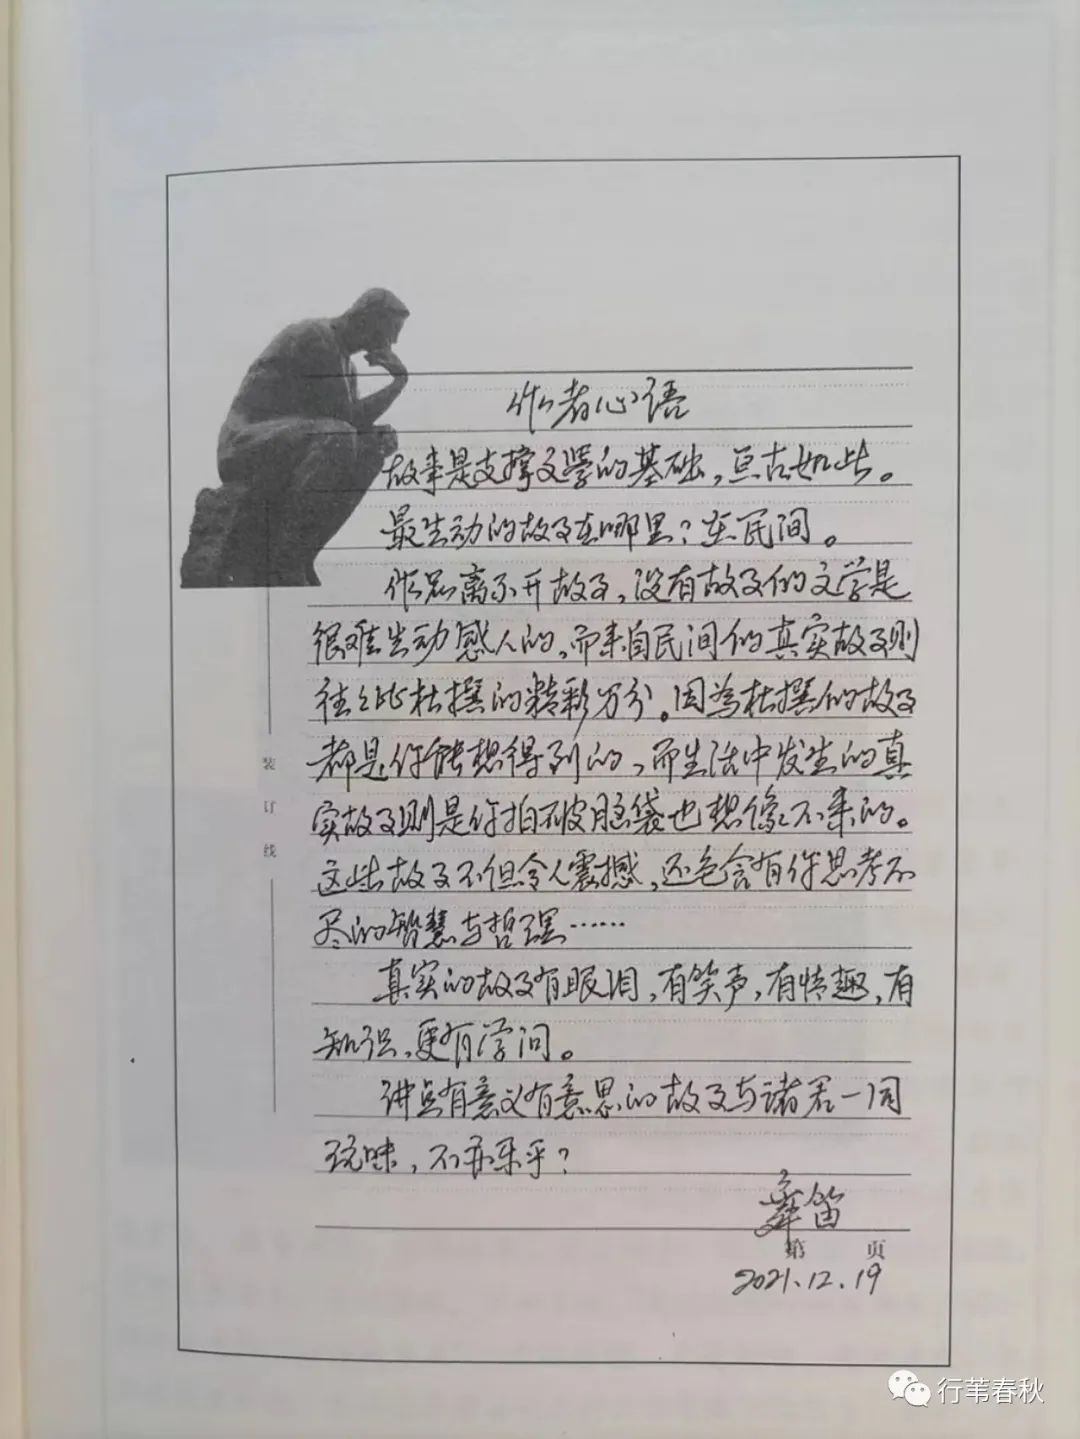 作者心语
故事是支撑文学的基础，亘古如此。
最生动的故事在哪里？在民间。
作品离不开故事，没有故事的文学是
很难生动感人的，而来自民间的真实故事则
往往比杜撰的精彩万分。因为杜撰的故事
都是你能想得到的，而生活中发生的真
实故事则是你拍破脑袋也想像不来的。
这些故事不但令人震撼，还包含有你思考不
尽的智慧与哲理……
真实的故事有眼泪，有笑声，有情趣，有
知识，更有学问。
讲些有意义有意思的故事与诸君一同
玩味，不亦乐乎？
笛
第 页
2021.12.19
装订线
行苇春秋